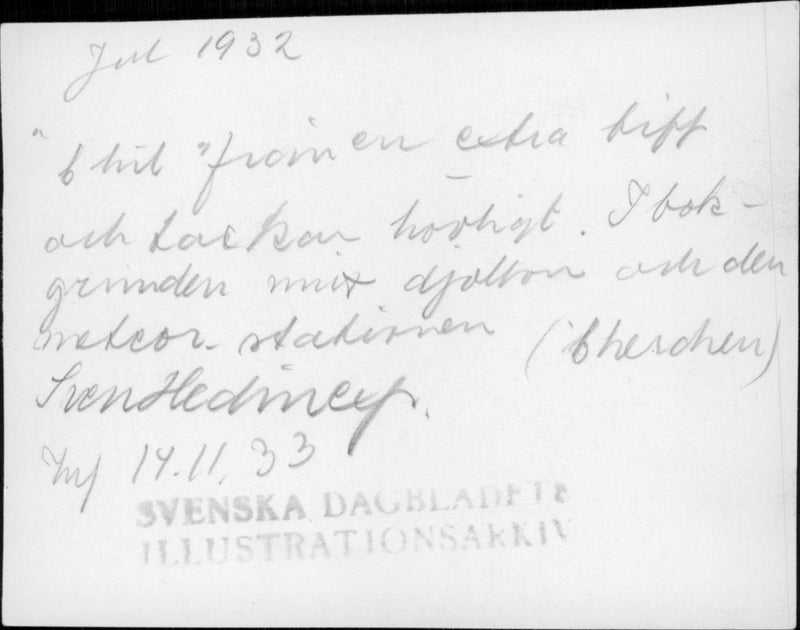 Jul 1932
från en extra biff
och tackar hövligt. I bak-
grunden min djollon och den
meteor. stationen (Cherchen)
Sven Hedin exp.
Inf 14.11.33
SVENSKA DAGBLADETS
ILLUSTRATIONSARKIV